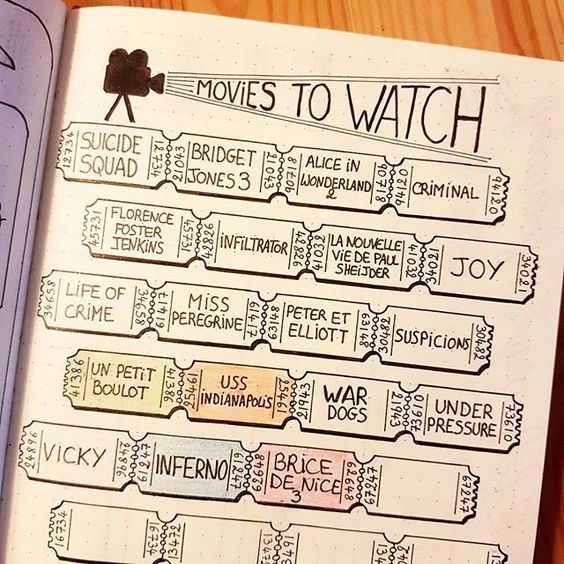 MOVIES TO WATCH
12734 SUICIDE SQUAD 12734
21043 BRIDGET JONES 3 21043
ALICE IN WONDERLAND 2
94120 CRIMINAL 94120
45731 FLORENCE FOSTER JENKINS 45731
42826 INFILTRATOR 42826
41032 LA NOUVELLE VIE DE PAUL SHEIJDER 41032
34021 JOY 34021
34658 LIFE OF CRIME 34658
61417 MISS PEREGRINE 61417
63148 PETER ET ELLIOTT 63148
30482 SUSPICIONS 30482
41386 UN PETIT BOULOT 41386
25461 USS INDIANAPOLIS 25461
21943 WAR DOGS 21943
73610 UNDER PRESSURE 73610
24896 VICKY 24896
61247 INFERNO 61247
62648 BRICE DE NICE 3 62648
67247 67247
16734 16734
13472